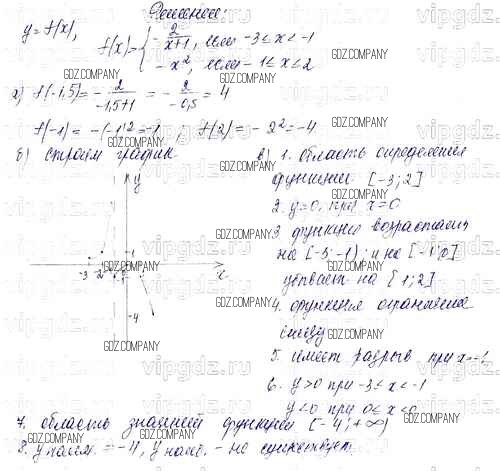 Решение:
y = f(x),
f(x) = { -2/(x+1), если -3 ≤ x < -1
-x², если -1 ≤ x ≤ 2
а) f(-1,5) = - 2/(-1,5+1) = - 2/(-0,5) = 4
f(-1) = -(-1)² = -1 ; f(2) = -2² = -4
б) строим график
y
x
-3 -2
-1
-4
в) 1. Область определения
функции [-3; 2]
2. y = 0, при x = 0
3 функция возрастает
на [-3; -1) и на [-1; 0]
убывает на [1; 2]
4. функция ограничена
снизу
5. имеет разрыв при x = -1
6. y > 0 при -3 ≤ x < -1
y < 0 при 0 ≤ x < 0
7. область значений функции [-4; +∞)
8. y наим. = -4, y наиб. - не существует.
vipgdz.ru
GDZ.COMPANY